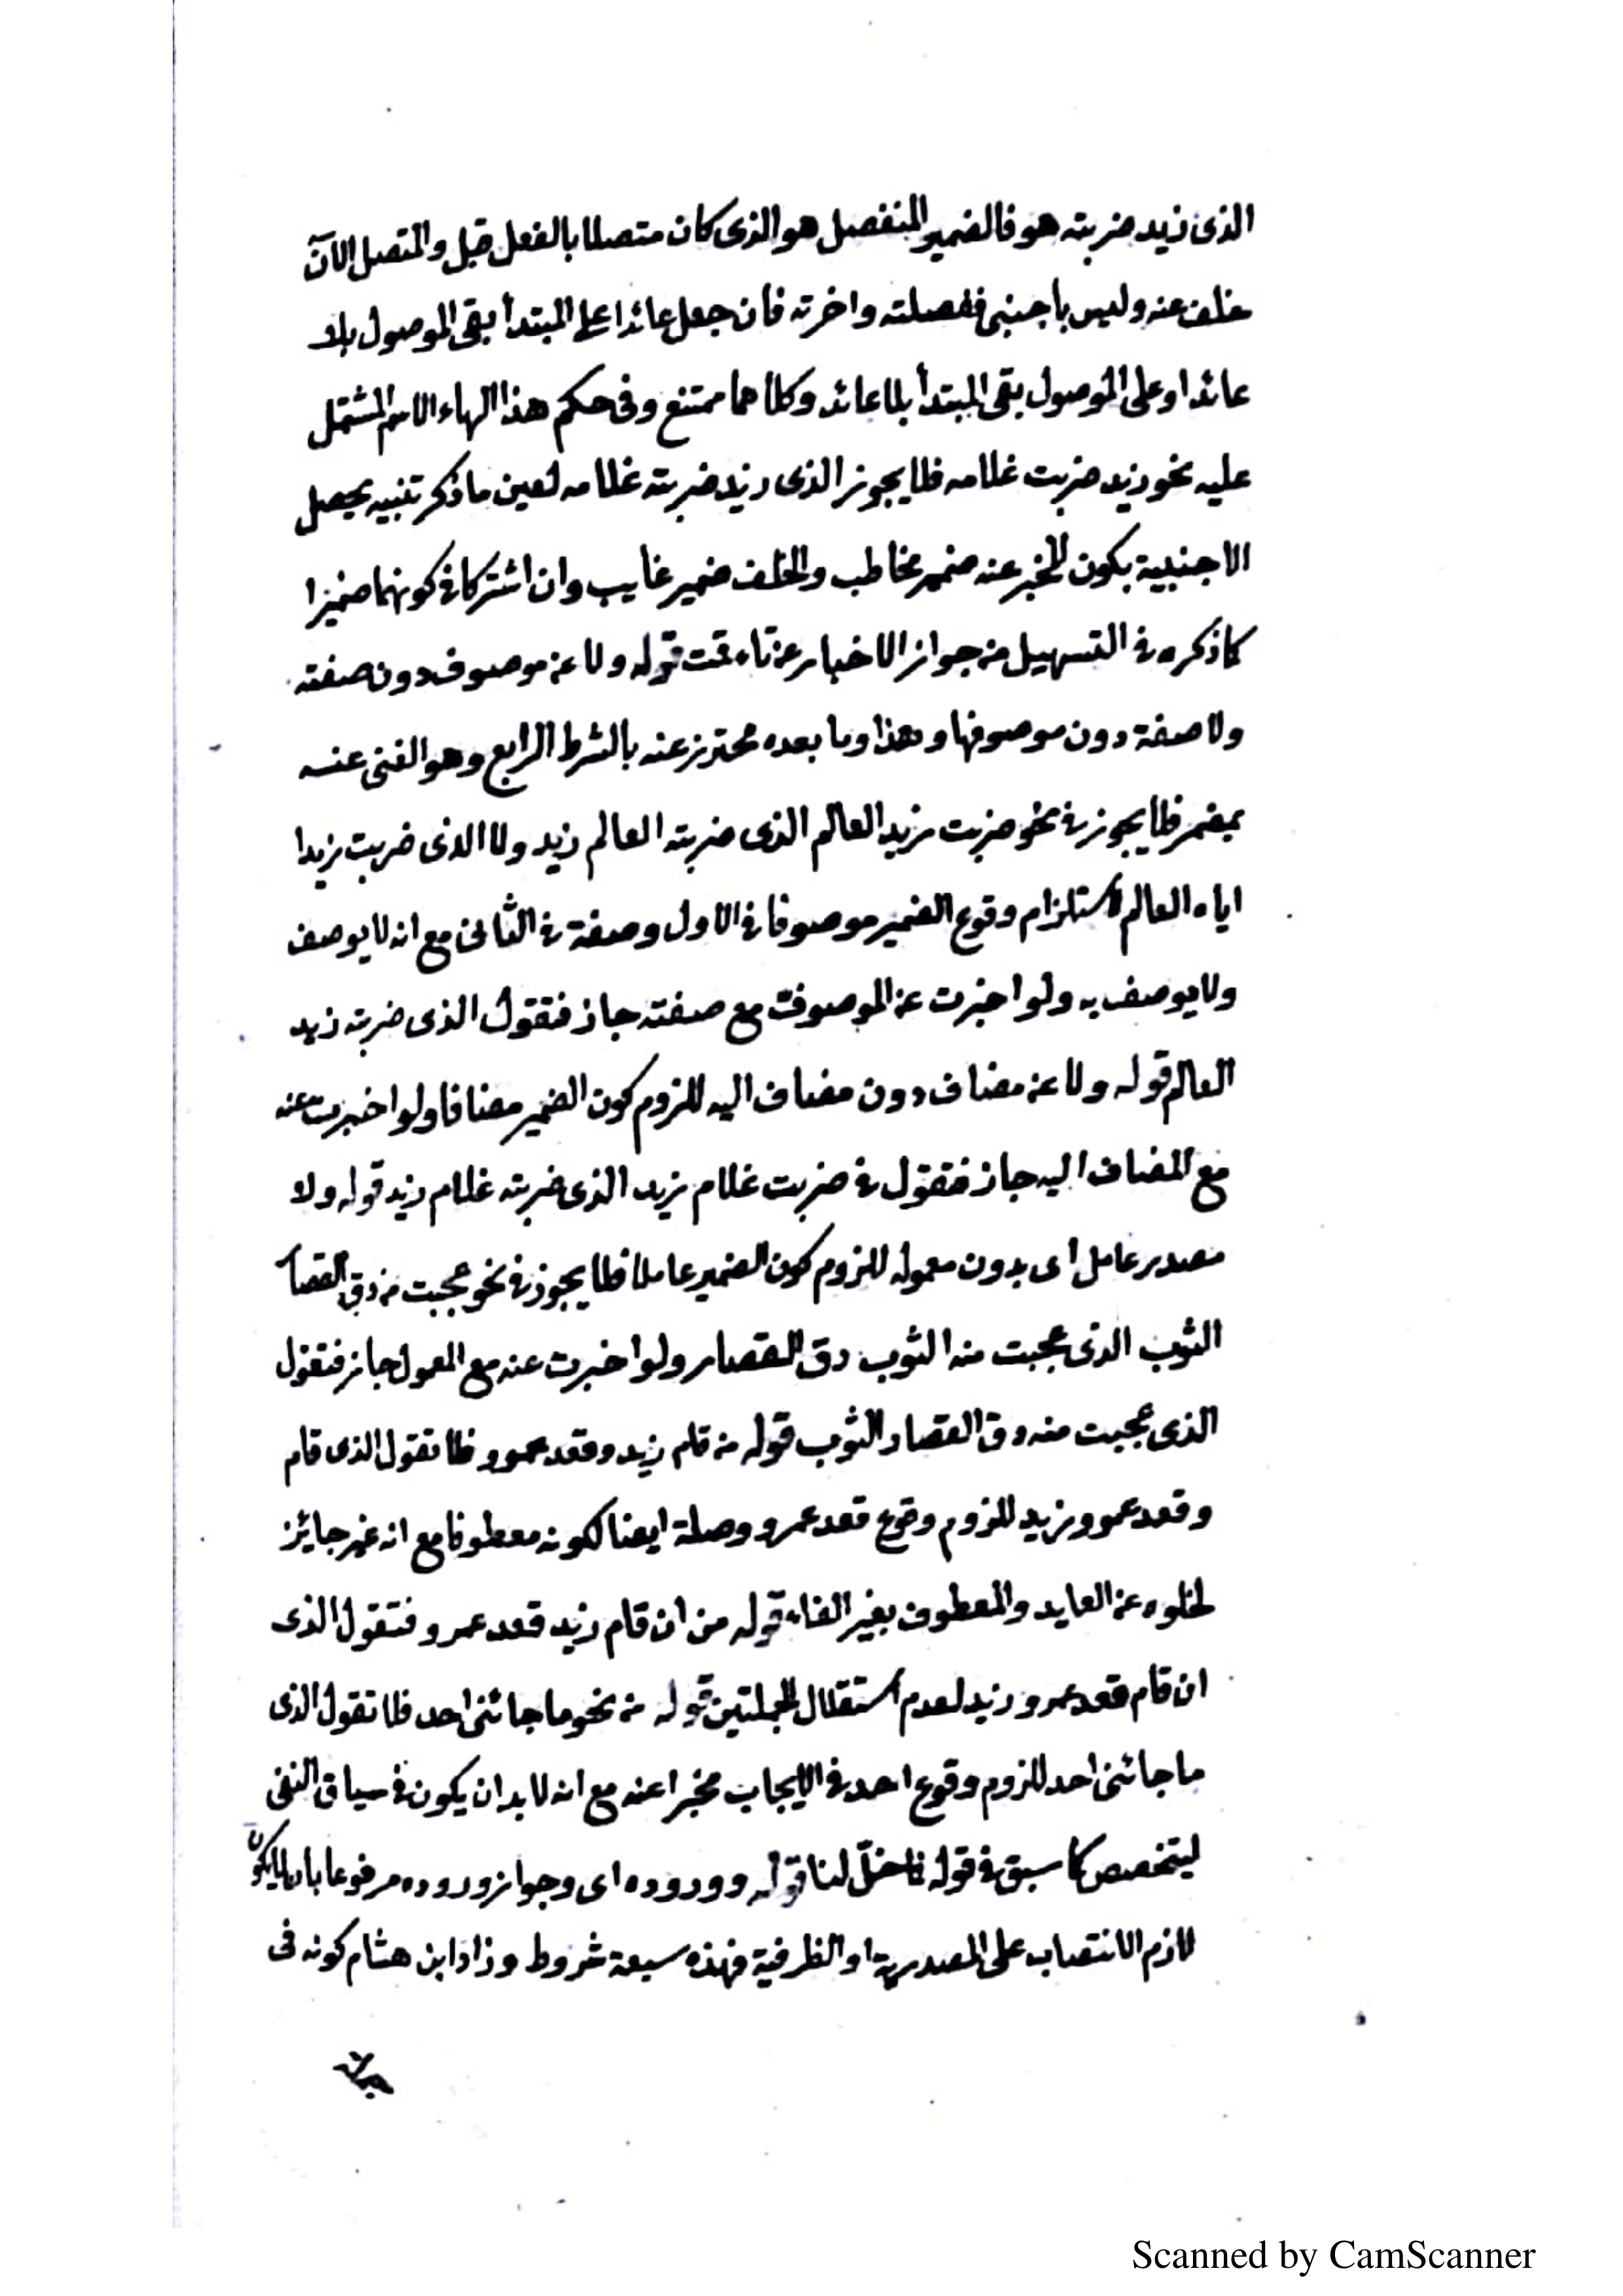 الذى زيد ضربته هو فالضمير المنفصل هو الذى كان متصلا بالفعل قبل والمتصل الآن
خلف عنه وليس باجنبى ففصلته واخرته فان جعل عائدا على المبتدأ بقى الموصول بلا
عائد او على الموصول بقى المبتدأ بلا عائد وكلاهما ممتنع وفى حكم هذا الهاء الاسم المشتمل
عليه نحو زيد ضربت غلامه فلا يجوز الذى زيد ضربته غلامه لعين ما ذكر تنبيه يحصل
الاجنبية بكون المخبر عنه ضمير مخاطب والخلف ضمير غايب وان اشتركا فى كونهما ضميرا
كما ذكره فى التسهيل من جواز الاخبار عن تاء قمت قوله ولا عن موصوف دون صفته
ولا صفة دون موصوفها وهذا وما بعده محترز عنه بالشرط الرابع وهو الغنى عنه
بمضمر فلا يجوز فى نحو ضربت زيد العالم الذى ضربته العالم زيد ولا الذى ضربت زيدا
اياه العالم لاستلزام وقوع الضمير موصوفا فى الاول وصفة فى الثانى مع انه لا يوصف
ولا يوصف به ولو اخبرت عن الموصوف مع صفته جاز فتقول الذى ضربته زيد
العالم قوله ولا عن مضاف دون مضاف اليه للزوم كون الضمير مضافا ولو اخبرت عنه
مع المضاف اليه جاز فتقول فى ضربت غلام زيد الذى ضربته غلام زيد قوله ولا
مصدر عامل اى بدون معموله للزوم كون الضمير عاملا فلا يجوز فى نحو عجبت من دق القصار
الثوب الذى عجبت منه الثوب دق القصار ولو اخبرت عنه مع المعمول جاز فتقول
الذى عجبت منه دق القصار الثوب قوله من قام زيد وقعد عمرو فلا تقول الذى قام
وقعد عمرو زيد للزوم وقوع قعد عمرو وصلة ايضا لكونه معطوفا مع انه غير جائز
لخلوه عن العايد والمعطوف بغير الفاء قوله من ان قام زيد قعد عمرو فتقول الذى
ان قام قعد عمرو زيد لعدم استقلال الجملتين قوله من نحو ما جائنى احد فلا تقول الذى
ما جائنى احد للزوم وقوع احد فى الايجاب مخبرا عنه مع انه لا بد ان يكون فى سياق النفى
ليتخصص كما سبق فى قوله فما خلّ لنا قوله ووروده اى وجواز وروده مرفوعا بان لا يكون
لازم الانتصاب على المصدرية او الظرفية فهذه سبعة شروط وزاد ابن هشام كونه فى
Scanned by CamScanner